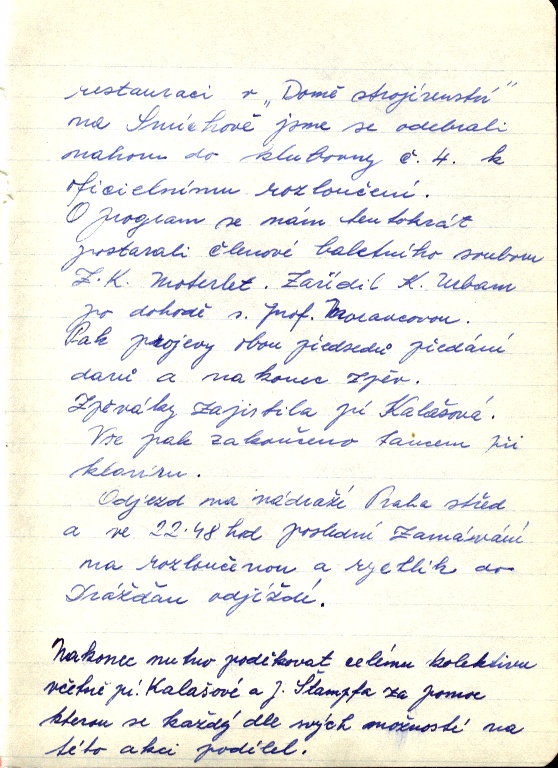 restauraci v „Domě strojírenství"
na Smíchově jsme se odebrali
nahoru do klubovny č. 4. k
oficielnímu rozloučení.
O program se nám tentokrát
postarali členové baletního souboru
Z.K. Moterlet. Zařídil K. Urban
po dohodě s. prof. Moravcovou.
Pak projevy obou předsedů předání
darů a nakonec zpěv.
Zpěváky zajistila pí Kalášová.
Vše pak zakončeno tancem při
klavíru.
Odjezd na nádraží Praha střed
a ve 22.48 hod poslední zamávání
na rozloučenou a rychlík do
Drážďan odjíždí.
Nakonec nutno poděkovat celému kolektivu
včetně pí. Kalašové a J. Štampfa za pomoc
kterou se každý dle svých možností na
této akci podílel.